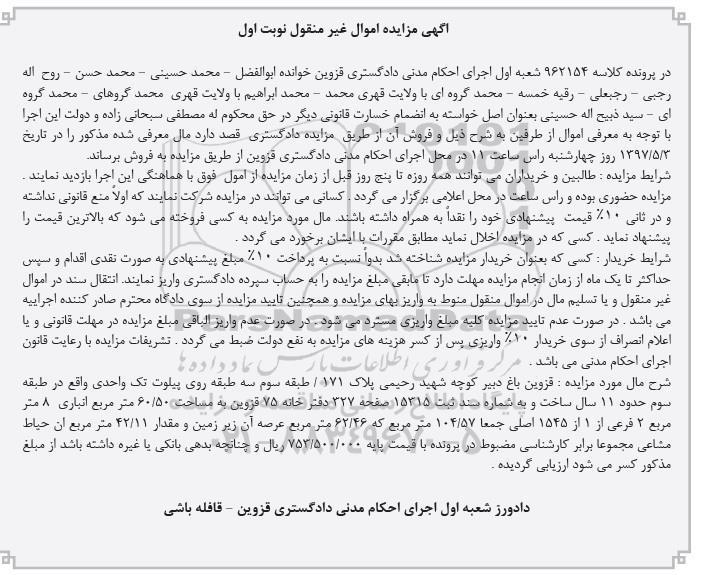 آگهی مزایده اموال غیر منقول نوبت اول
در پرونده کلاسه ۹۶۲۱۵۴ شعبه اول اجرای احکام مدنی دادگستری قزوین خوانده ابوالفضل – محمد حسینی – محمد حسن – روح اله
رجبی – رجبعلی – رقیه خمسه – محمد گروه ای با ولایت قهری محمد – محمد ابراهیم با ولایت قهری محمد گروهای – محمد گروه
ای – سید ذبیح اله حسینی بعنوان اصل خواسته به انضمام خسارت قانونی دیگر در حق محکوم له مصطفی سبحانی زاده و دولت این اجرا
با توجه به معرفی اموال از طرفین به شرح ذیل و فروش آن از طریق مزایده دادگستری قصد دارد مال معرفی شده مذکور را در تاریخ
۱۳۹۷/۵/۳ روز چهارشنبه راس ساعت ۱۱ در محل اجرای احکام مدنی دادگستری قزوین از طریق مزایده به فروش برساند.
شرایط مزایده : طالبین و خریداران می توانند همه روزه تا پنج روز قبل از زمان مزایده از امول فوق با هماهنگی این اجرا بازدید نمایند .
مزایده حضوری بوده و راس ساعت در محل اعلامی برگزار می گردد . کسانی می توانند در مزایده شرکت نمایند که اولاً منع قانونی نداشته
و در ثانی ۱۰٪ قیمت پیشنهادی خود را نقداً به همراه داشته باشند. مال مورد مزایده به کسی فروخته می شود که بالاترین قیمت را
پیشنهاد نماید . کسی که در مزایده اخلال نماید مطابق مقررات با ایشان برخورد می گردد .
شرایط خریدار : کسی که بعنوان خریدار مزایده شناخته شد بدواً نسبت به پرداخت ۱۰٪ مبلغ پیشنهادی به صورت نقدی اقدام و سپس
حداکثر تا یک ماه از زمان انجام مزایده مهلت دارد تا مابقی مبلغ مزایده را به حساب سپرده دادگستری واریز نمایند. انتقال سند در اموال
غیر منقول و یا تسلیم مال در اموال منقول منوط به واریز بهای مزایده و همچنین تایید مزایده از سوی دادگاه محترم صادر کننده اجراییه
می باشد . در صورت عدم تایید مزایده کلیه مبلغ واریزی مسترد می شود . در صورت عدم واریز الباقی مبلغ مزایده در مهلت قانونی و یا
اعلام انصراف از سوی خریدار ۱۰٪ واریزی پس از کسر هزینه های مزایده به نفع دولت ضبط می گردد . تشریفات مزایده با رعایت قانون
اجرای احکام مدنی می باشد .
شرح مال مورد مزایده : قزوین باغ دبیر کوچه شهید رحیمی پلاک ۱۷۱ / طبقه سوم سه طبقه روی پیلوت تک واحدی واقع در طبقه
سوم حدود ۱۱ سال ساخت و به شماره سند ثبت ۱۵۳۱۵ صفحه ۳۲۷ دفتر خانه ۷۵ قزوین به مساحت ۶۰/۵۰ متر مربع انباری ۸ متر
مربع ۲ فرعی از ۱ از ۱۵۴۵ اصلی جمعا ۱۰۴/۵۷ متر مربع که ۶۲/۴۶ متر مربع عرصه آن زیر زمین و مقدار ۴۲/۱۱ متر مربع ان حیاط
مشاعی مجموعا برابر کارشناسی مضبوط در پرونده با قیمت پایه ۷۵۳/۵۰۰/۰۰۰ ریال و چنانچه بدهی بانکی یا غیره داشته باشد از مبلغ
مذکور کسر می شود ارزیابی گردیده .
دادورز شعبه اول اجرای احکام مدنی دادگستری قزوین – قافله باشی
ParsNamadData
مرکز فرآوری اطلاعات پارس نماد داده ها